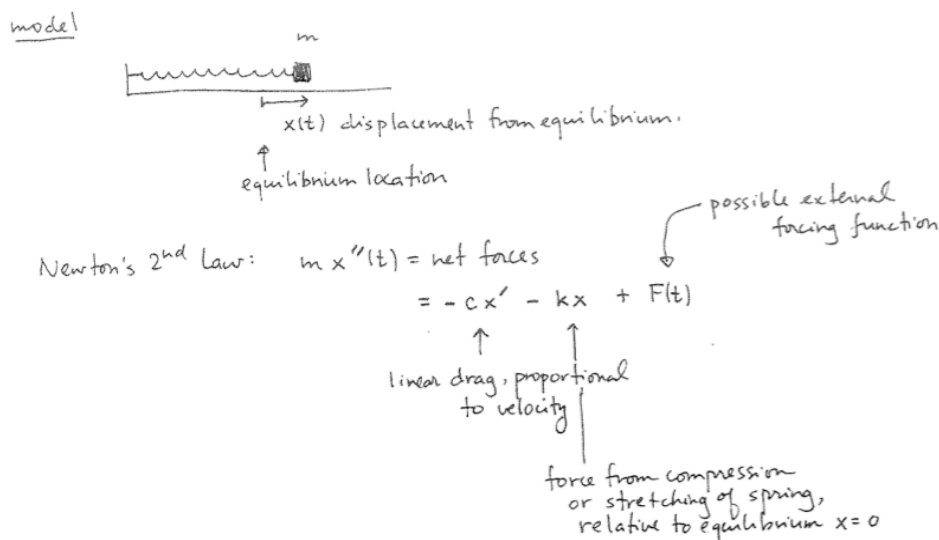 model
m
x(t) displacement from equilibrium.
equilibrium location
possible external
forcing function
Newton's 2nd Law: m x"(t) = net forces
= - cx' - kx + F(t)
linear drag, proportional
to velocity
force from compression
or stretching of spring,
relative to equilibrium x = 0